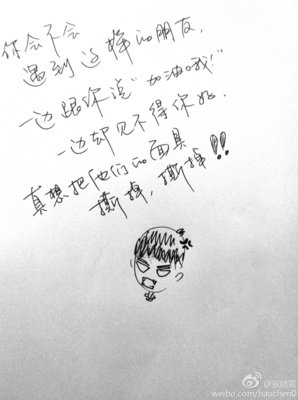 你会不会
遇到这样的朋友,
一边跟你说“加油哦!”
一边却见不得你好.
真想把他们的面具
撕掉, 撕掉!!
@张皓宸
weibo.com/haochen0